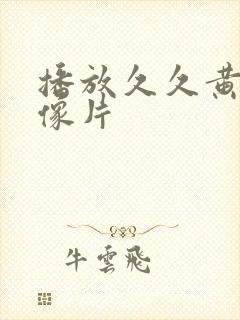 播放久久黄
像片
牛雲飛